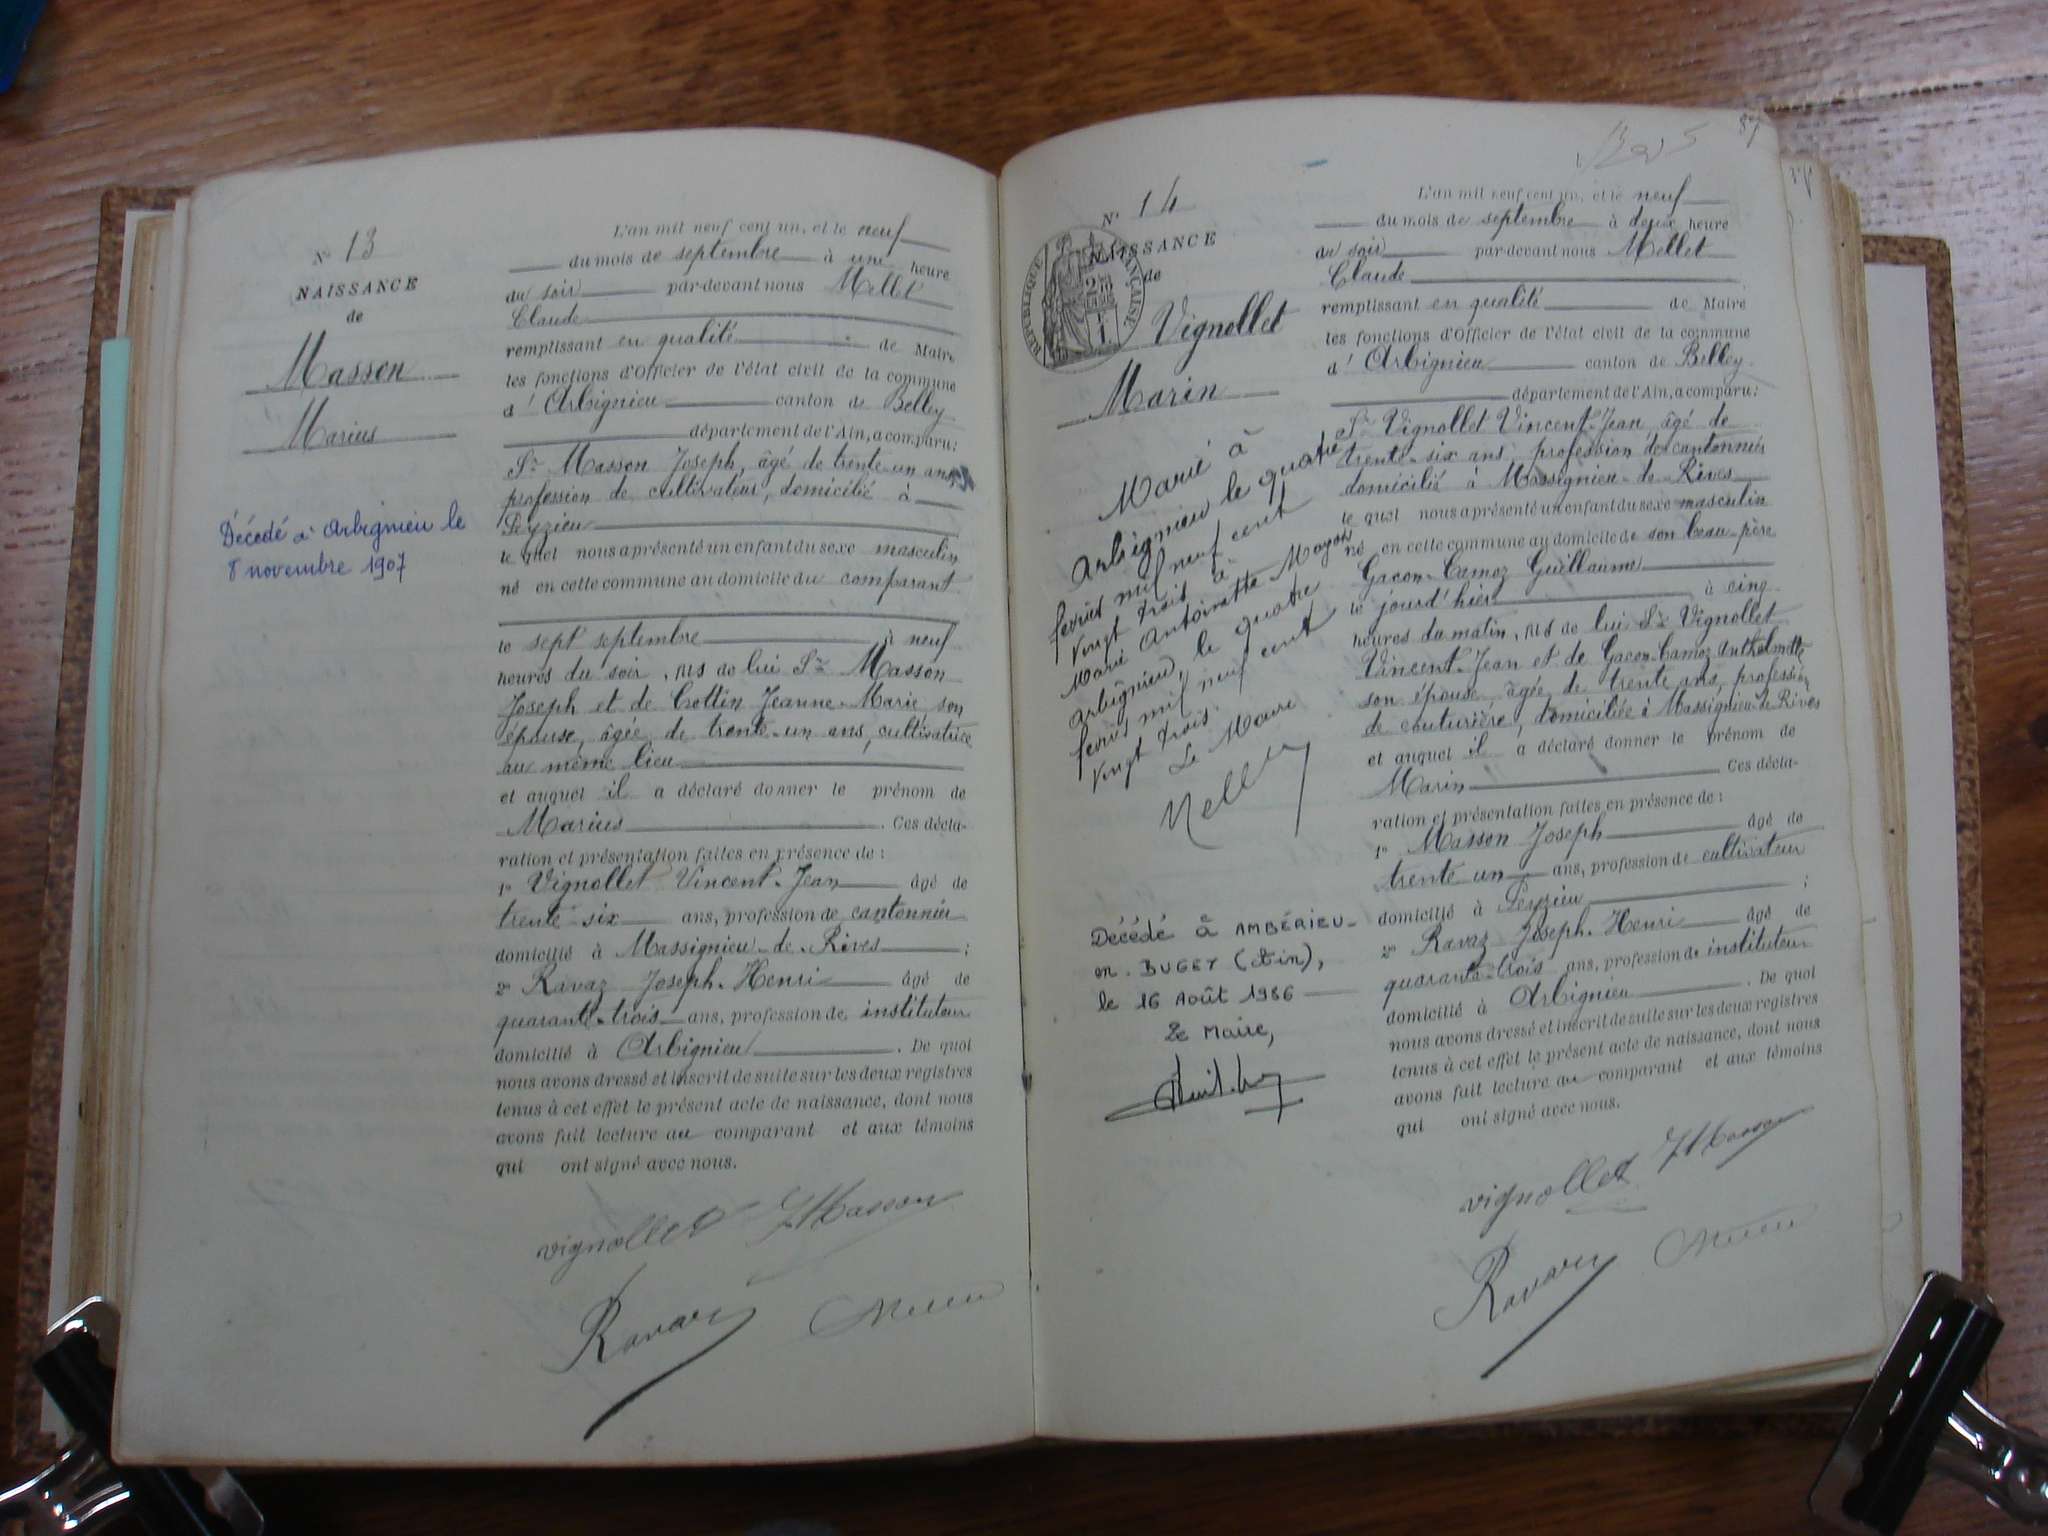 N° 13
NAISSANCE
de
Masson
Marius
Décédé à Arbignieu le
8 novembre 1907
L'an mil neuf cent un, et le neuf
du mois de septembre à une heure
du soir par-devant nous Mellet
Claude
remplissant en qualité de Maire
les fonctions d'Officier de l'état civil de la commune
d'Arbignieu canton de Belley
département de l'Ain, a comparu:
Sr Masson Joseph, âgé de trente-un ans,
profession de cultivateur, domicilié à
Peyzieu
le quel nous a présenté un enfant du sexe masculin
né en cette commune au domicile du comparant
le sept septembre à neuf
heures du soir, fils de lui Sr Masson
Joseph et de Crottin Jeanne-Marie son
épouse, âgée de trente-un ans, cultivatrice
au même lieu
et auquel il a déclaré donner le prénom de
Marius. Ces décla-
ration et présentation faites en présence de:
1° Vignollet Vincent-Jean âgé de
trente-six ans, profession de cantonnier
domicilié à Massignieu-de-Rives;
2° Ravaz Joseph-Henri âgé de
quarante-trois ans, profession de instituteur
domicilié à Arbignieu. De quoi
nous avons dressé et inscrit de suite sur les deux registres
tenus à cet effet le présent acte de naissance, dont nous
avons fait lecture au comparant et aux témoins
qui ont signé avec nous.
Vignollet J Masson
Ravaz
87
N° 14
NAISSANCE
de
RÉPUBLIQUE FRANÇAISE
Vignollet
Marin
Marié à
Arbignieu le quatre
février mil neuf cent
vingt trois à
Marie Antoinette
Arbignieu, le quatre
février mil neuf cent
vingt trois.
Le Maire
Décédé à AMBÉRIEU-
en-BUGEY (Ain),
le 16 Août 1986
Le Maire,
L'an mil neuf cent un, et le neuf
du mois de septembre à deux heure
du soir par-devant nous Mellet
Claude
remplissant en qualité de Maire
les fonctions d'Officier de l'état civil de la commune
d'Arbignieu canton de Belley
département de l'Ain, a comparu:
Sr Vignollet Vincent-Jean âgé de
trente-six ans, profession de cantonnier
domicilié à Massignieu-de-Rives
le quel nous a présenté un enfant du sexe masculin
né en cette commune au domicile de son beau-père
Gacon-Camoz Guillaume
le jourd'hier à cinq
heures du matin, fils de lui Sr Vignollet
Vincent-Jean et de Gacon-Camoz Anthelmette
son épouse, âgée de trente ans, profession
de couturière, domiciliée à Massignieu-de-Rives
et auquel il a déclaré donner le prénom de
Marin Ces décla-
ration et présentation faites en présence de:
1° Masson Joseph âgé de
trente un ans, profession de cultivateur
domicilié à Peyzieu;
2° Ravaz Joseph-Henri âgé de
quarante-trois ans, profession de instituteur
domicilié à Arbignieu. De quoi
nous avons dressé et inscrit de suite sur les deux registres
tenus à cet effet le présent acte de naissance, dont nous
avons fait lecture au comparant et aux témoins
qui ont signé avec nous.
Vignollet J Masson
Ravaz